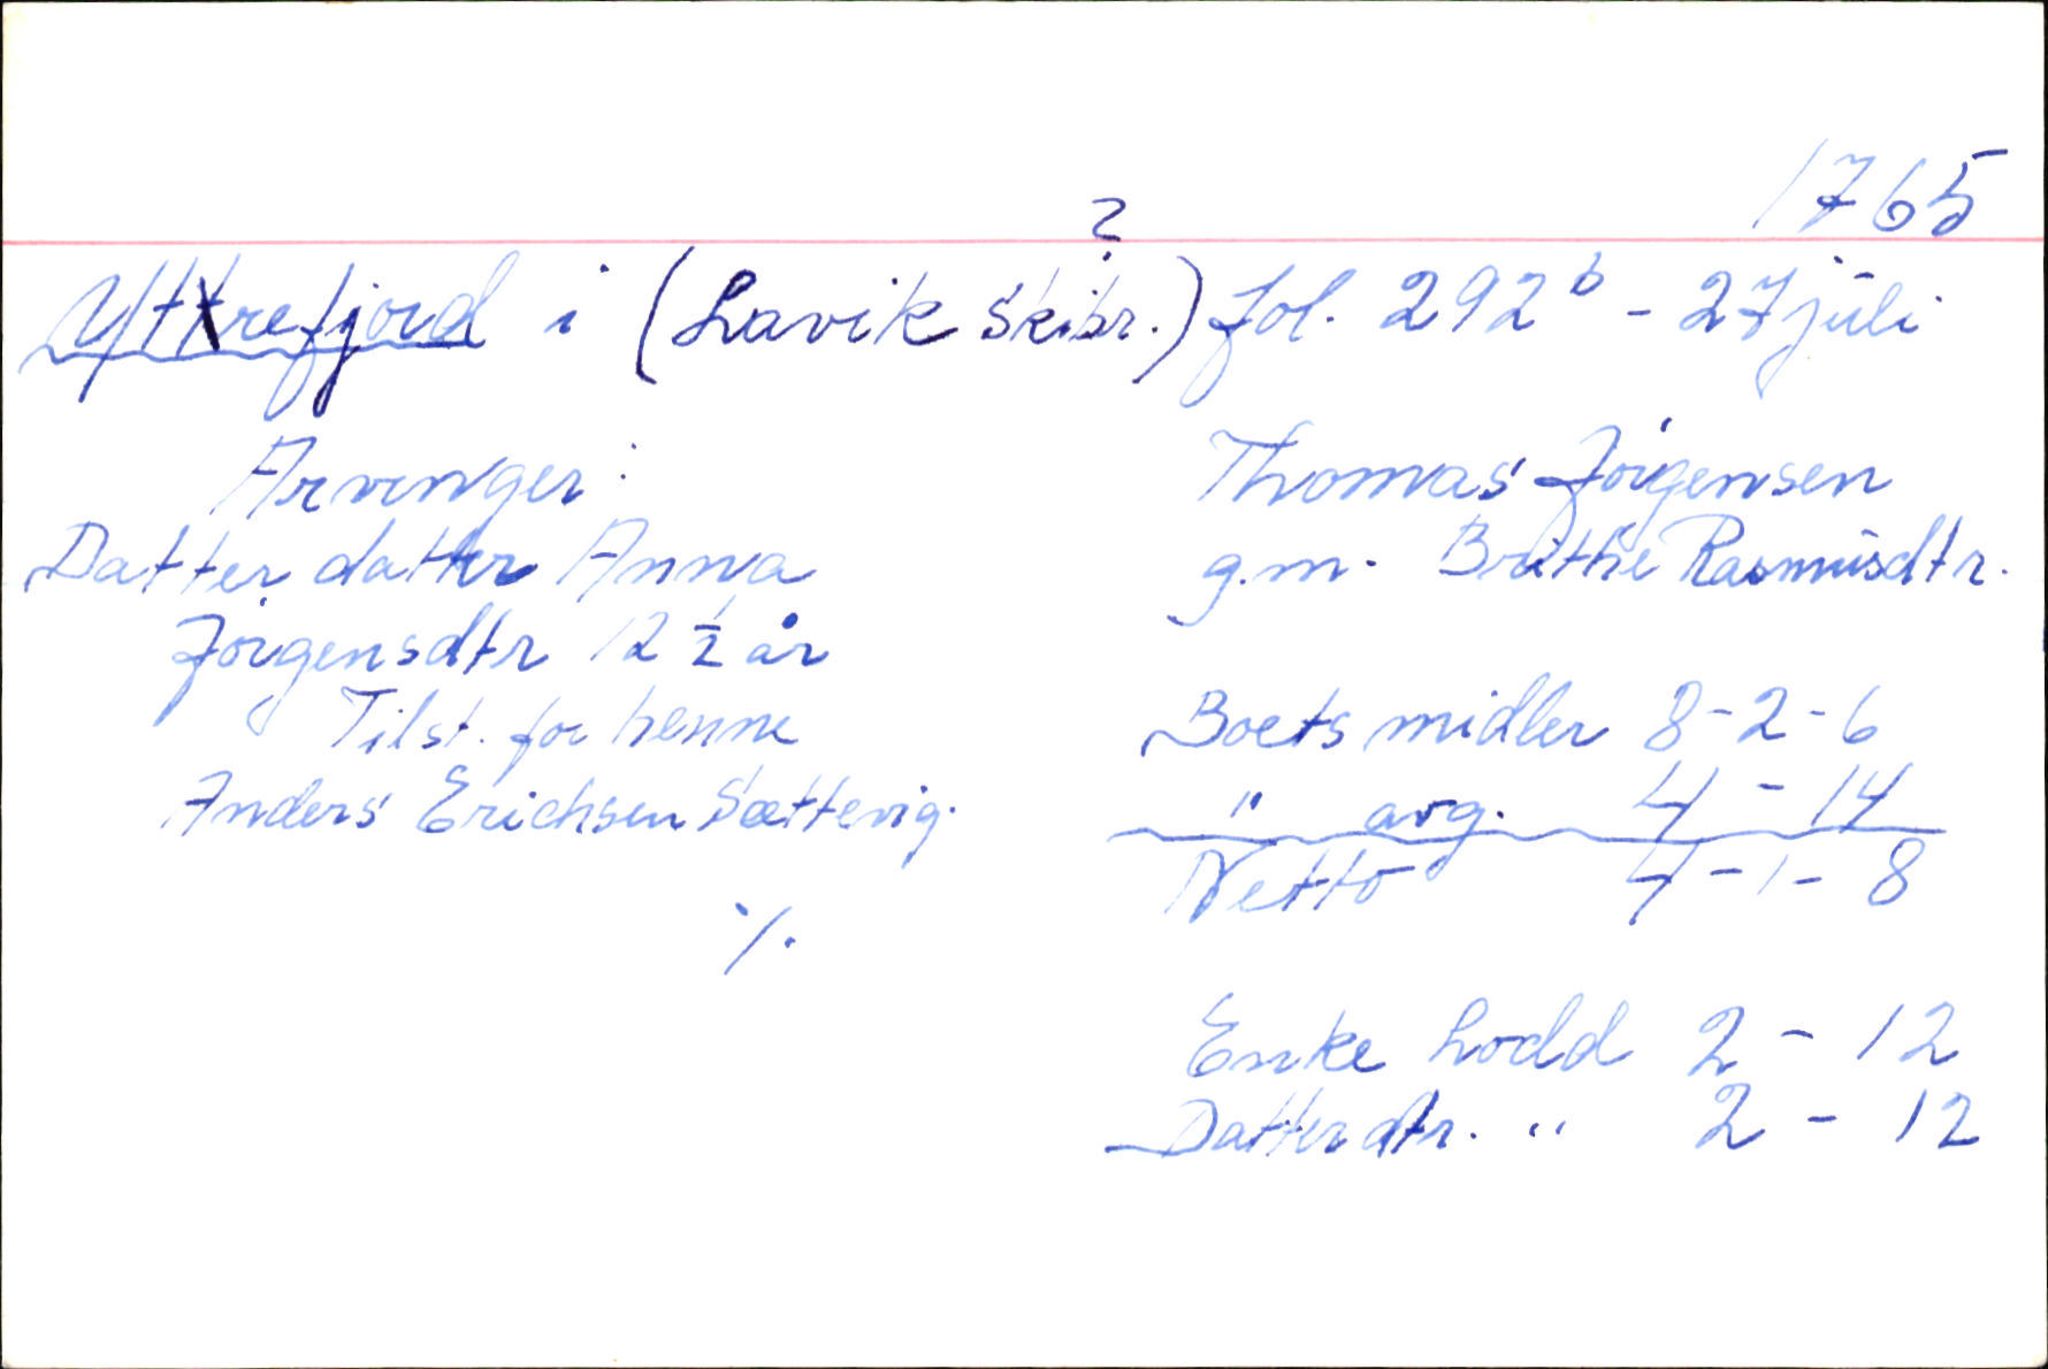 1765
?
Yttrefjord i (Lavik Skibr.) fol. 292b - 27 juli
Arvinger:
Datter datter Anna
Jörgensdtr 12 1/2 år
Tilst. for henne
Anders Erichsen Sættevig.
%.
Thomas Jörgensen
g.m. Brithe Rasmusdtr.
Boets midler 8-2-6
" avg. 4 - 14
Netto 4-1-8
Enke lodd 2 - 12
Datter dtr. " 2 - 12